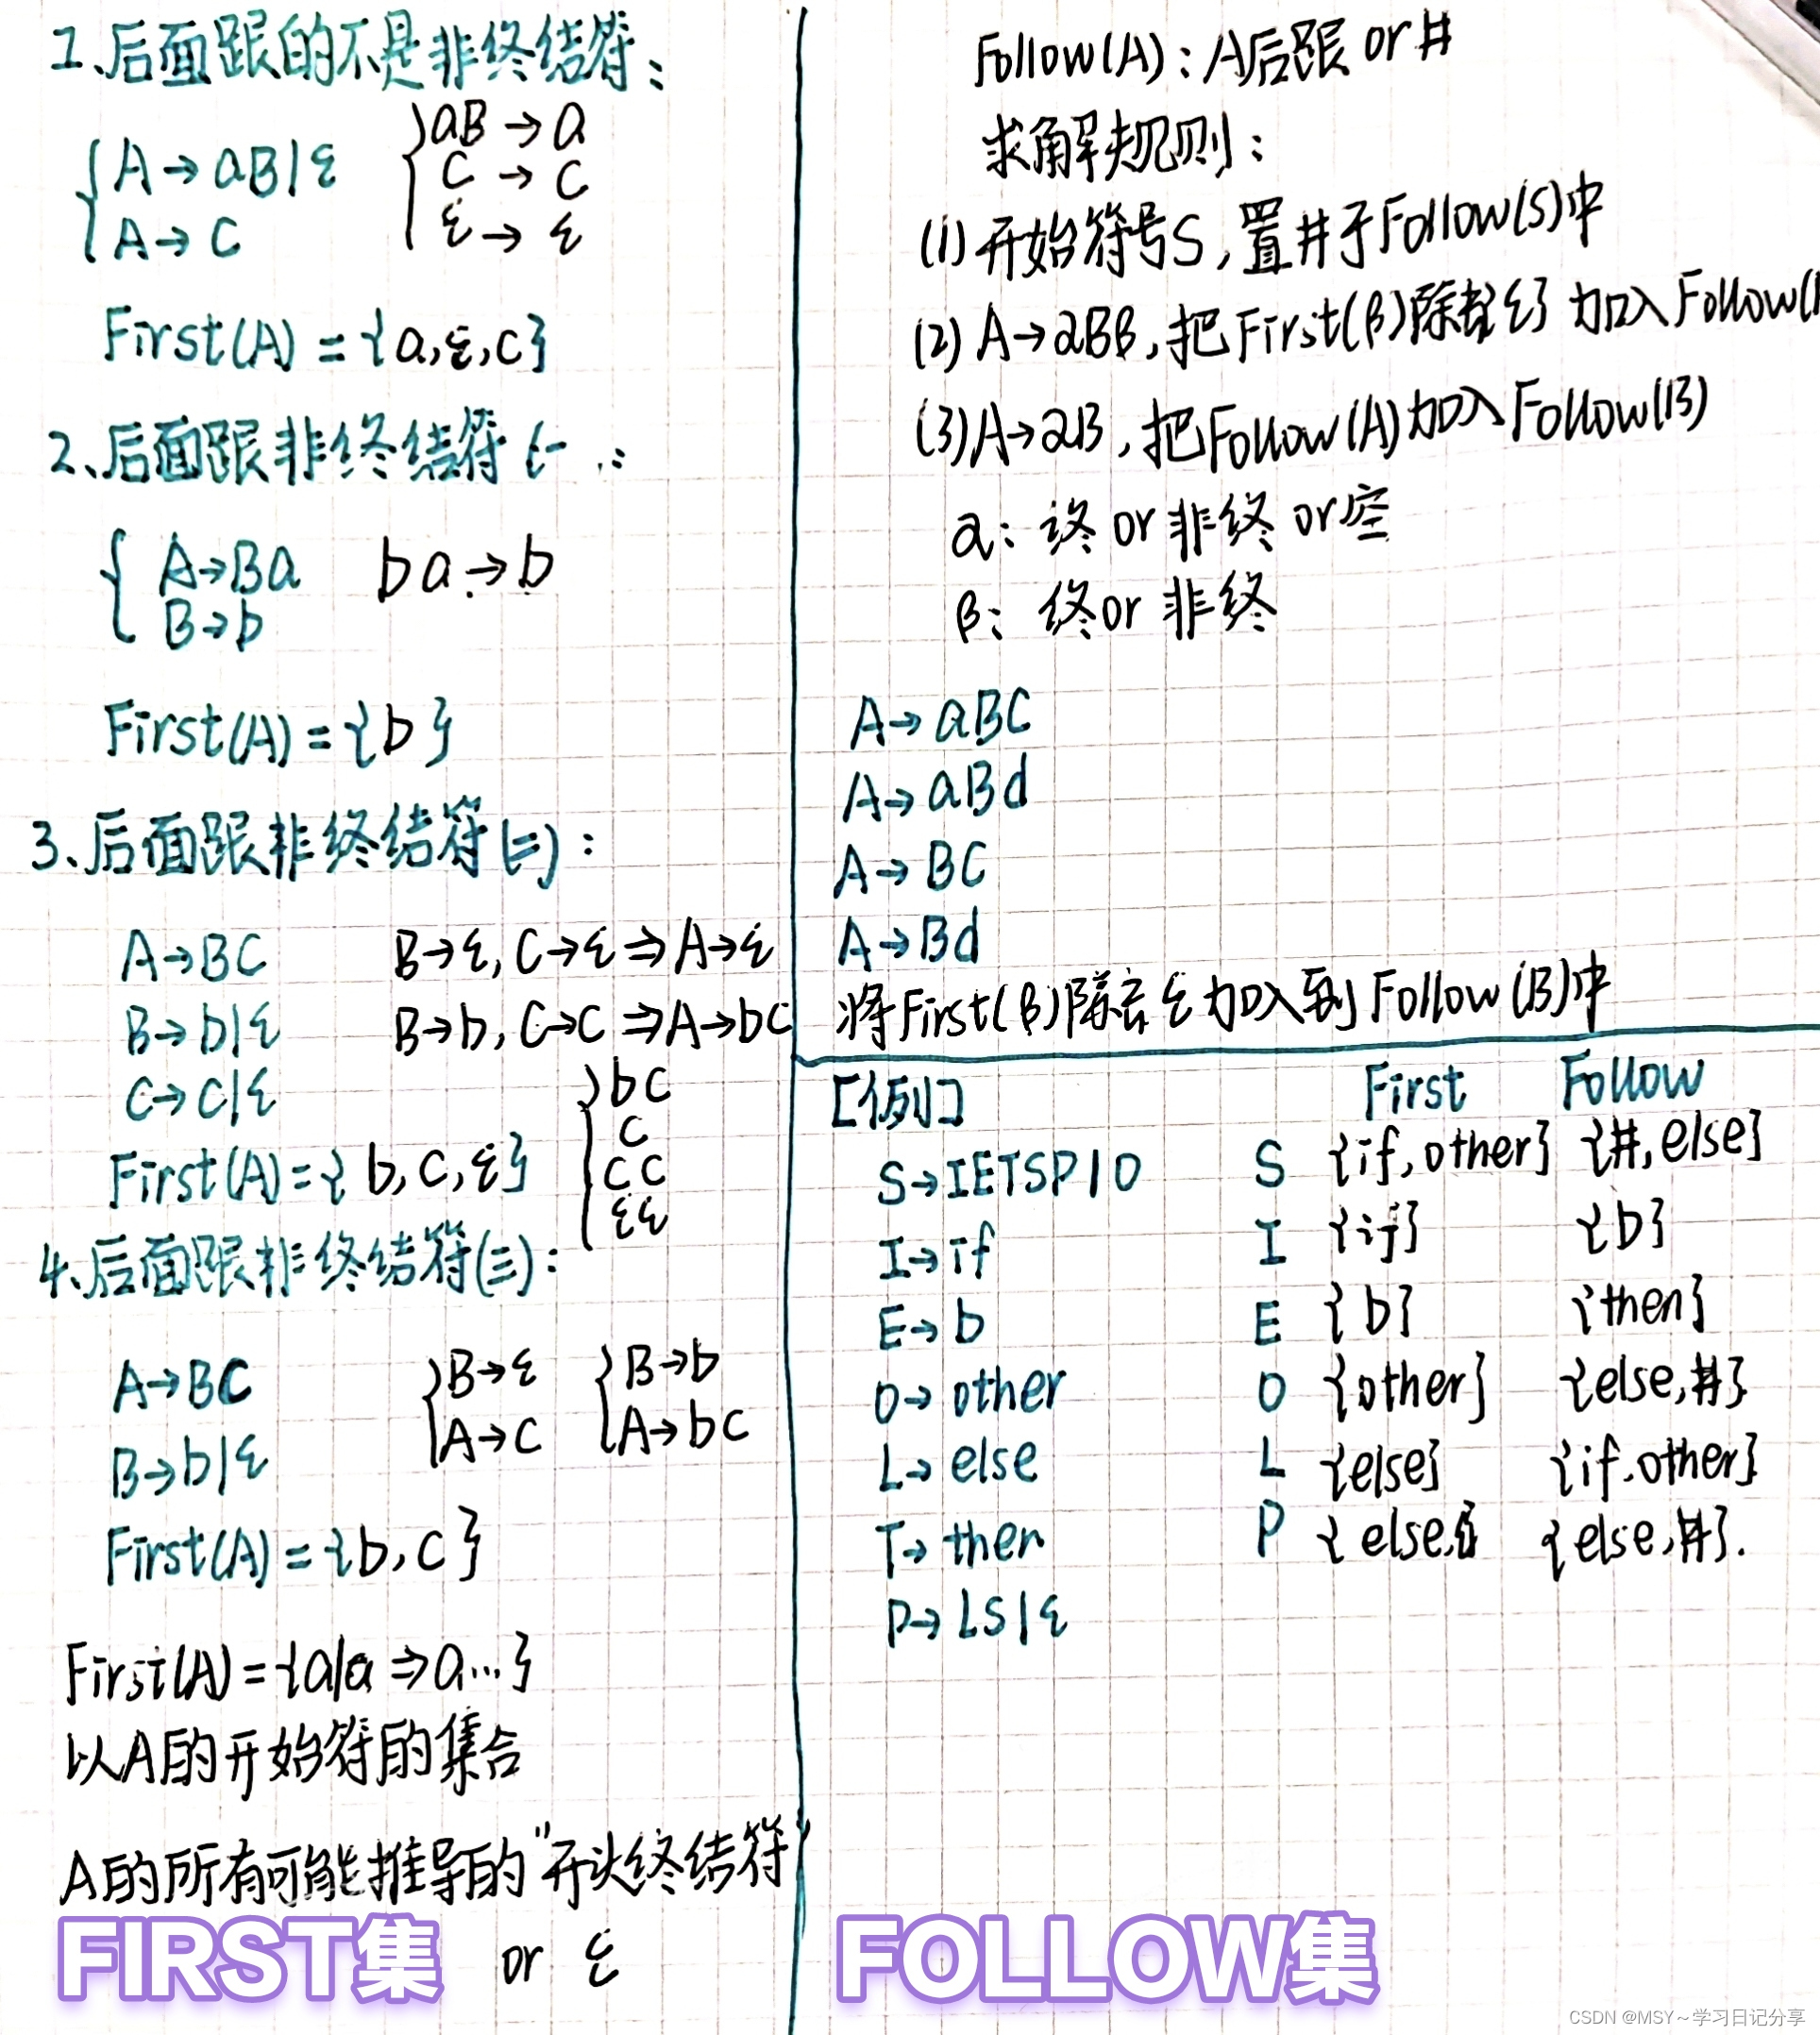 1、后面跟的不是非终结符：
A→aB|ε
A→c
aB→a
c→c
ε→ε
First(A)={a,ε,c}
2、后面跟非终结符(一)：
A→Ba
B→b
ba→b
First(A)={b}
3、后面跟非终结符(二)：
A→BC
B→b|ε
C→c|ε
B→ε,C→ε⇒A→ε
B→b,C→c⇒A→bc
bc
c
cc
εε
First(A)={b,c,ε}
4、后面跟非终结符(三)：
A→BC
B→b|ε
B→ε
A→C
B→b
A→bc
First(A)={b,c}
First(A)={a|a⇒a…}
以A的开始符的集合
A的所有可能推导的"开头终结符"
or ε
FIRST集
Follow(A)：A后跟or#
求解规则：
(1)开始符号S,置#于Follow(S)中
(2)A→αBβ,把First(β)除{ε}加入Follow(
(3)A→αB,把Follow(A)加入Follow(B)
α：终or非终or空
β：终or非终
A→aBC
A→aBd
A→BC
A→Bd
将First(β)除去ε加入到Follow(B)中
[例]
S→IETSP|O
I→if
E→b
O→other
L→else
T→then
P→LS|ε
First Follow
S {if,other} {#,else}
I {if} {b}
E {b} {then}
O {other} {else,#}
L {else} {if,other}
P {else,ε} {else,#}.
FOLLOW集
CSDN @MSY～学习日记分享